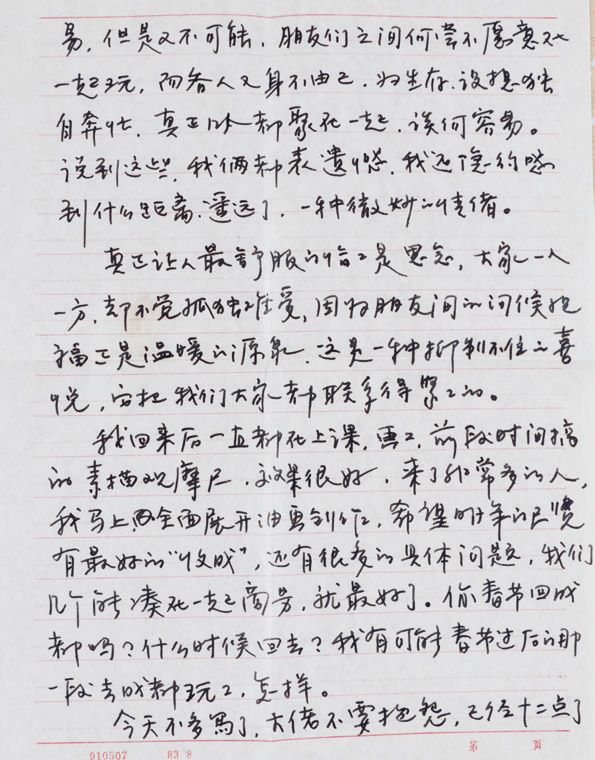 易，但是又不可能，朋友们之间何尝不愿意在
一起玩，而各人又身不由己，为生存、设想独
自奔忙，真正以后都聚在一起，谈何容易。
说到这些，我俩都表遗憾，我还隐约感
到什么距离遥远了，一种微妙的情绪。
真正让人最舒服的信々是思念，大家一人
一方，却不觉孤独难受，因为朋友间的问候祝
福正是温暖的源泉，这是一种抑制不住的喜
悦，它把我们大家都联系得紧々的。
我回来后一直都在上课，画々，前段时间搞
的素描观摩展，效果很好，来了非常多的人，
我马上全面展开油画创作，希望明年的展览
有最好的“收成”，还有很多的具体问题，我们
几个能凑在一起商量，就最好了。你春节回成
都吗？什么时候回去？我有可能春节过后的那
一段去成都玩々，怎样。
今天不多写了，大佬不要抱怨，已经十二点了
910507 83 8
第 页